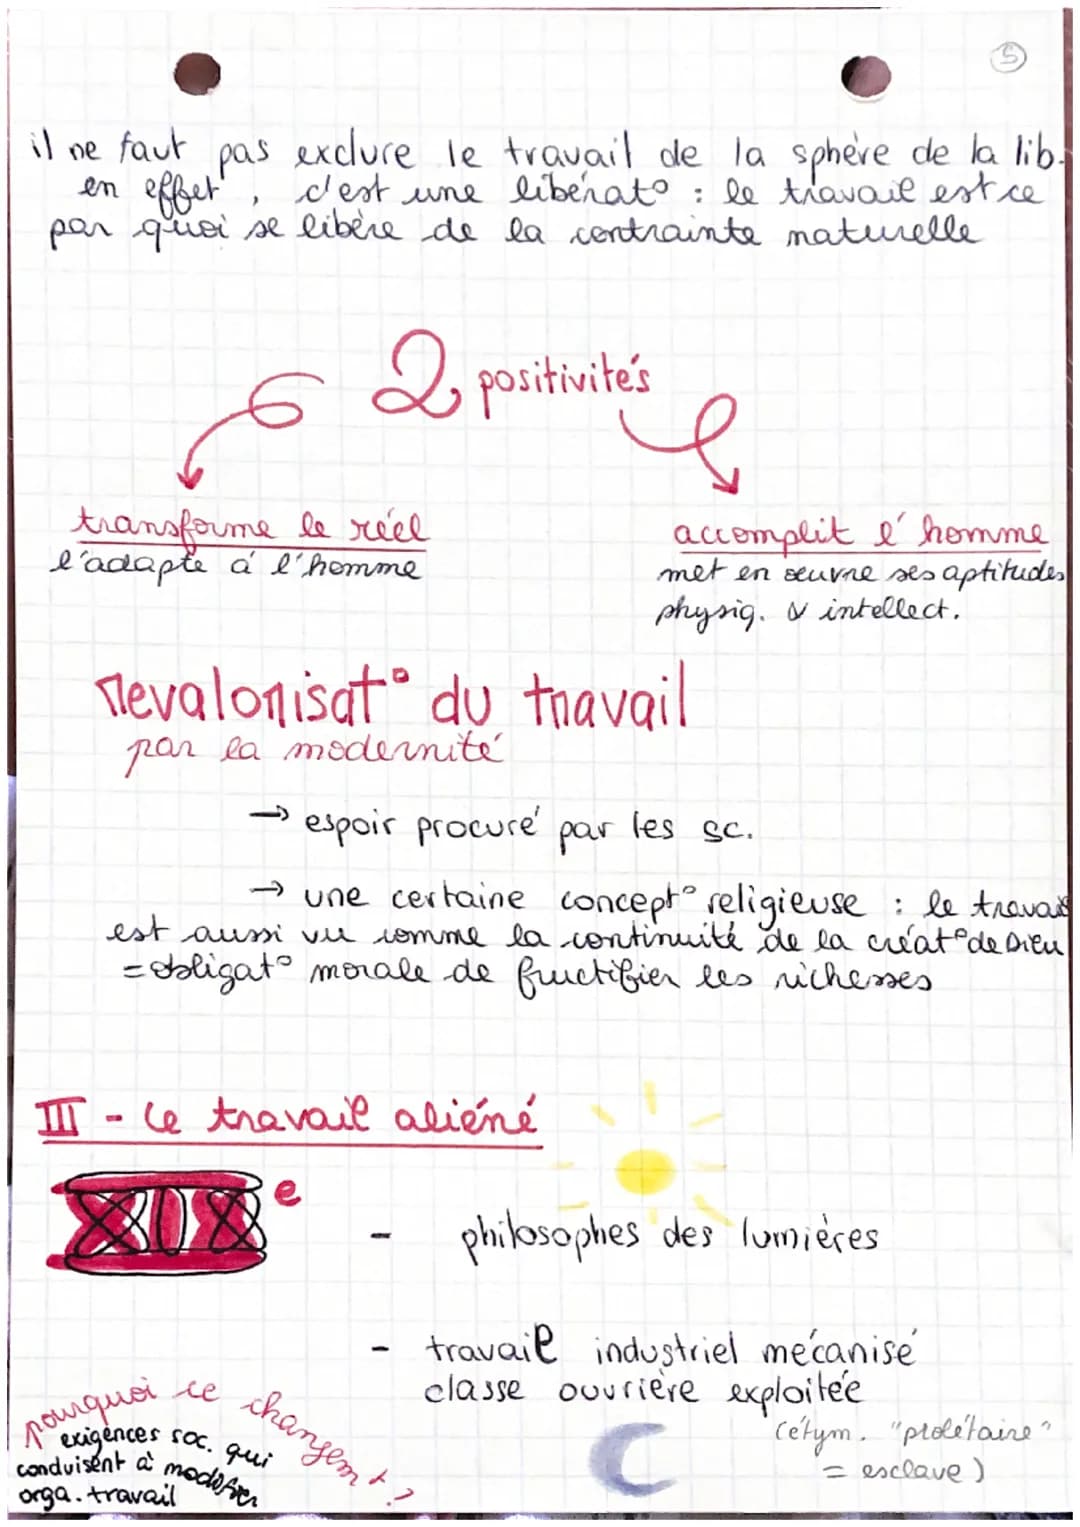 5
il ne faut pas exclure le travail de la sphère de la lib.
en effet, c'est une libérat° : le travail est ce
par quoi se libère de la contrainte naturelle
2 positivités
transforme le réel
l'adapte à l'homme
accomplit l'homme
met en oeuvre ses aptitudes
physiq. & intellect.
revalorisat° du travail
par la modernité
→ espoir procuré par les sc.
→ une certaine concept° religieuse : le travail
est aussi vu comme la continuité de la créat° de Dieu
= obligat° morale de fructifier les richesses
III - Le travail aliéné
XIXe
- philosophes des lumières
- travail industriel mécanisé
classe ouvrière exploitée
(étym. "prolétaire"
= esclave)
pourquoi ce changemt ?
exigences soc. qui
conduisent à modifier
orga. travail